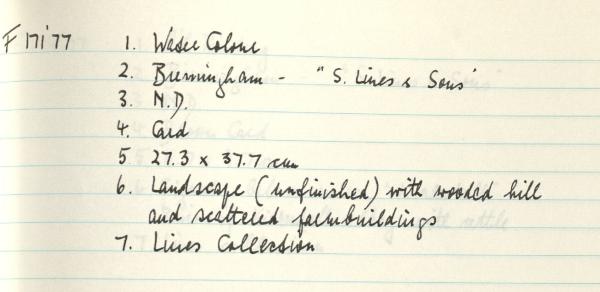 F 171'77 1. Water Colour
2. Birmingham - "S. Lines & Sons"
3. N.D.
4. Card
5. 27.3 x 37.7 cm
6. Landscape (unfinished) with wooded hill
and scattered farmbuildings
7. Lines Collection